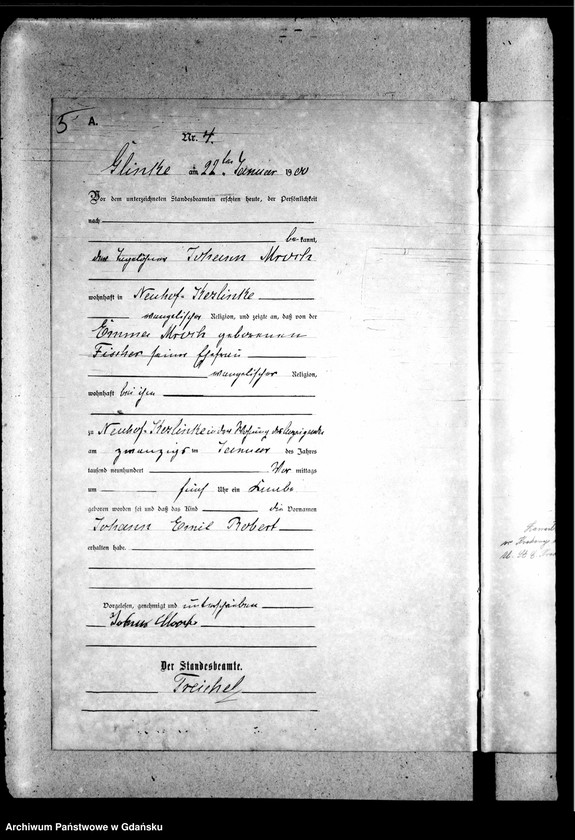 5
A.
Nr. 4.
Glinke am 22ten Januar 1900
Vor dem unterzeichneten Standesbeamten erschien heute, der Persönlichkeit
nach
be kannt,
der Johann Mroch
wohnhaft in Neuhof-Kezlinke
evangelischer Religion, und zeigte an, daß von der
Emma Mroch geborenen
Fischer seiner Ehefrau
evangelischer Religion,
wohnhaft bei ihm
zu Neuhof-Kezlinke in der Wohnung des Anzeigenden
am zwanzigs ten Januar des Jahres
tausend neunhundert Vor mittags
um fünf Uhr ein Knabe
geboren worden sei und daß das Kind die Vornamen
Johann Emil Robert
erhalten habe.
Vorgelesen, genehmigt und unterschrieben
Johann Mroch
Der Standesbeamte.
Treichel
Archiwum Państwowe w Gdańsku